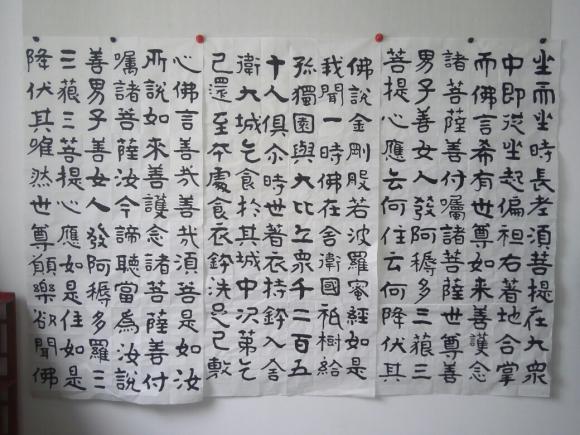 坐而坐時長老須菩提在大眾
中即從坐起偏袒右著地合掌
而佛言希有世尊如來善護念
諸菩薩善付囑諸菩薩世尊善
男子善女人發阿耨多三藐三
菩提心應云何住云何降伏其
佛說金剛般若波羅蜜經如是
我聞一時佛在舍衛國祇樹給
孤獨園與大比丘眾千二百五
十人俱尒時世著衣持鉢入舍
衛大城乞食於其城中次第乞
已還至本處食衣鉢洗足已敷
心佛言善哉善哉須菩是如汝
所說如來善護念諸菩薩善付
囑諸菩薩汝今諦聽當為汝說
善男子善女人發阿耨多羅三
三藐三菩提心應如是住如是
降伏其唯然世尊願樂欲聞佛